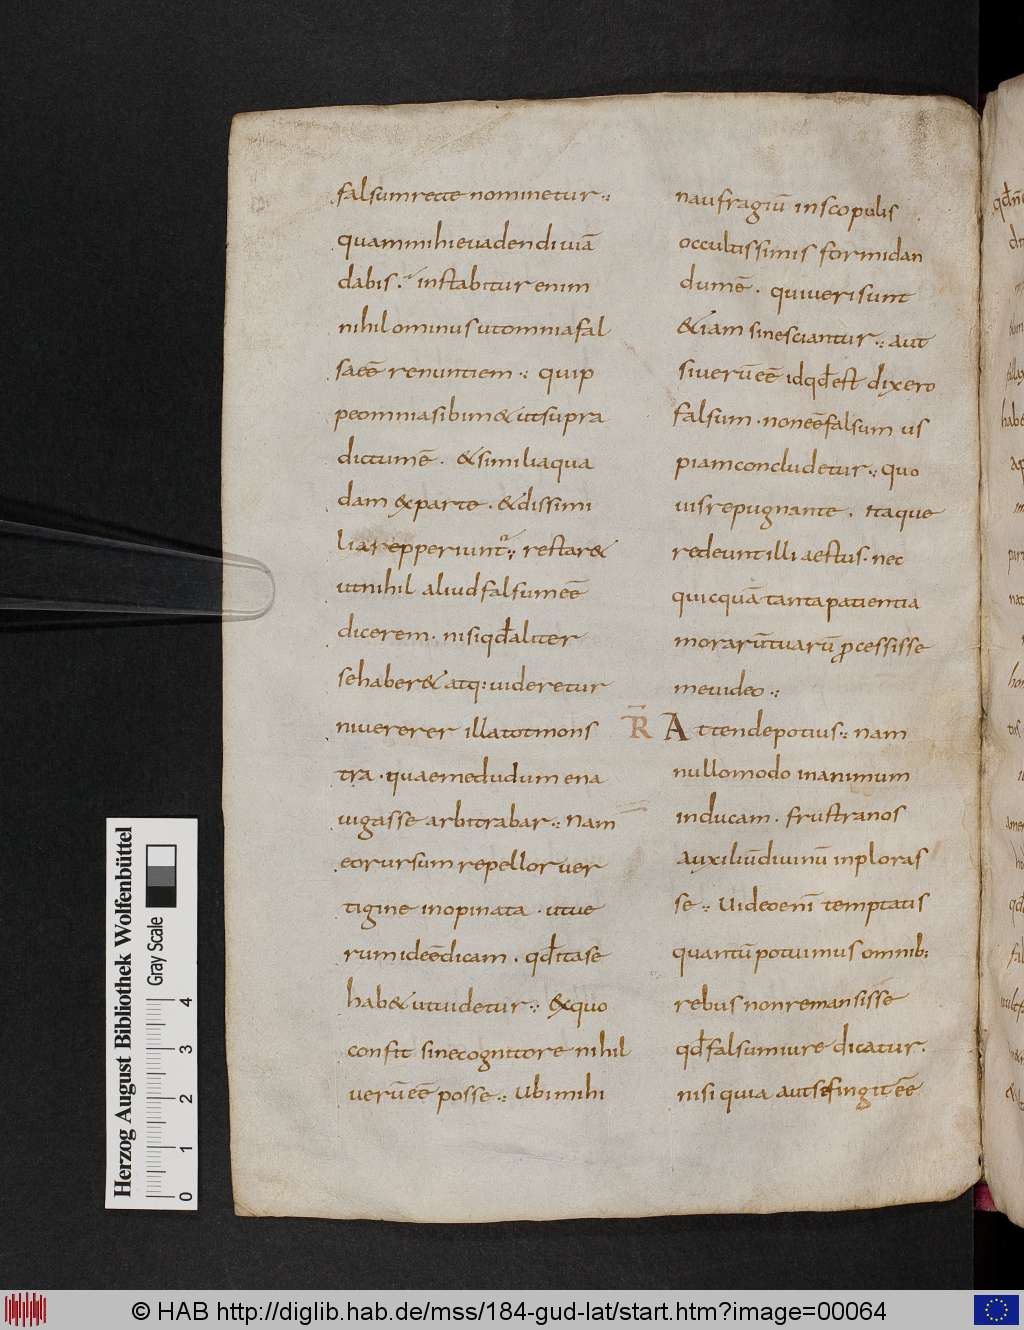 falsum recte nominetur ·:
quam mihi euadendi uiā
dabis .' instabitur enim
nihilominus ut omnia fal
sa eē̄ renuntiem ·: quip
pe omnia sibim & ut supra
dictum ē . & similia qua
dam ex parte . & dissimi
lia repperiunt̄ ·: restar &
ut nihil aliud falsum eē̄
dicerem . nisi qđ aliter
se haber & atq: uideretur
ni uererer illa tot mons
tra . quae me dudum ena
uigasse arbitrabar ·: Nam
eo rursum repellor uer
tigine inopinata . ut ue
rum id eē dicam . qđ ita se
hab & ut uidetur ·: ex quo
confit sine cognitore nihil
uerū eē̄ posse ·: Ubi mihi
naufragiū in scopulis
occultissimis formidan
dum ē . qui ueri sunt
& iam si nesciantur ·: aut
si uerū eē̄ id qđ est dixero
falsum . non eē falsum us
piam concludetur ·: quo
uis repugnante . Itaque
redeunt illi aestus . nec
quicquā tanta patientia
morarū tuarū ꝓcessisse
me uideo ·:
R̄ Attende potius ·: nam
nullo modo in animum
inducam . frustra nos
auxiliū diuinū inploras
se ·: Uideo enī temptatis
quantū potuimus omnib:
rebus non remansisse
qđ falsum iure dicatur .
nisi quia aut se fingit eē̄
Herzog August Bibliothek Wolfenbüttel
Gray Scale
0 1 2 3 4
© HAB http://diglib.hab.de/mss/184-gud-lat/start.htm?image=00064